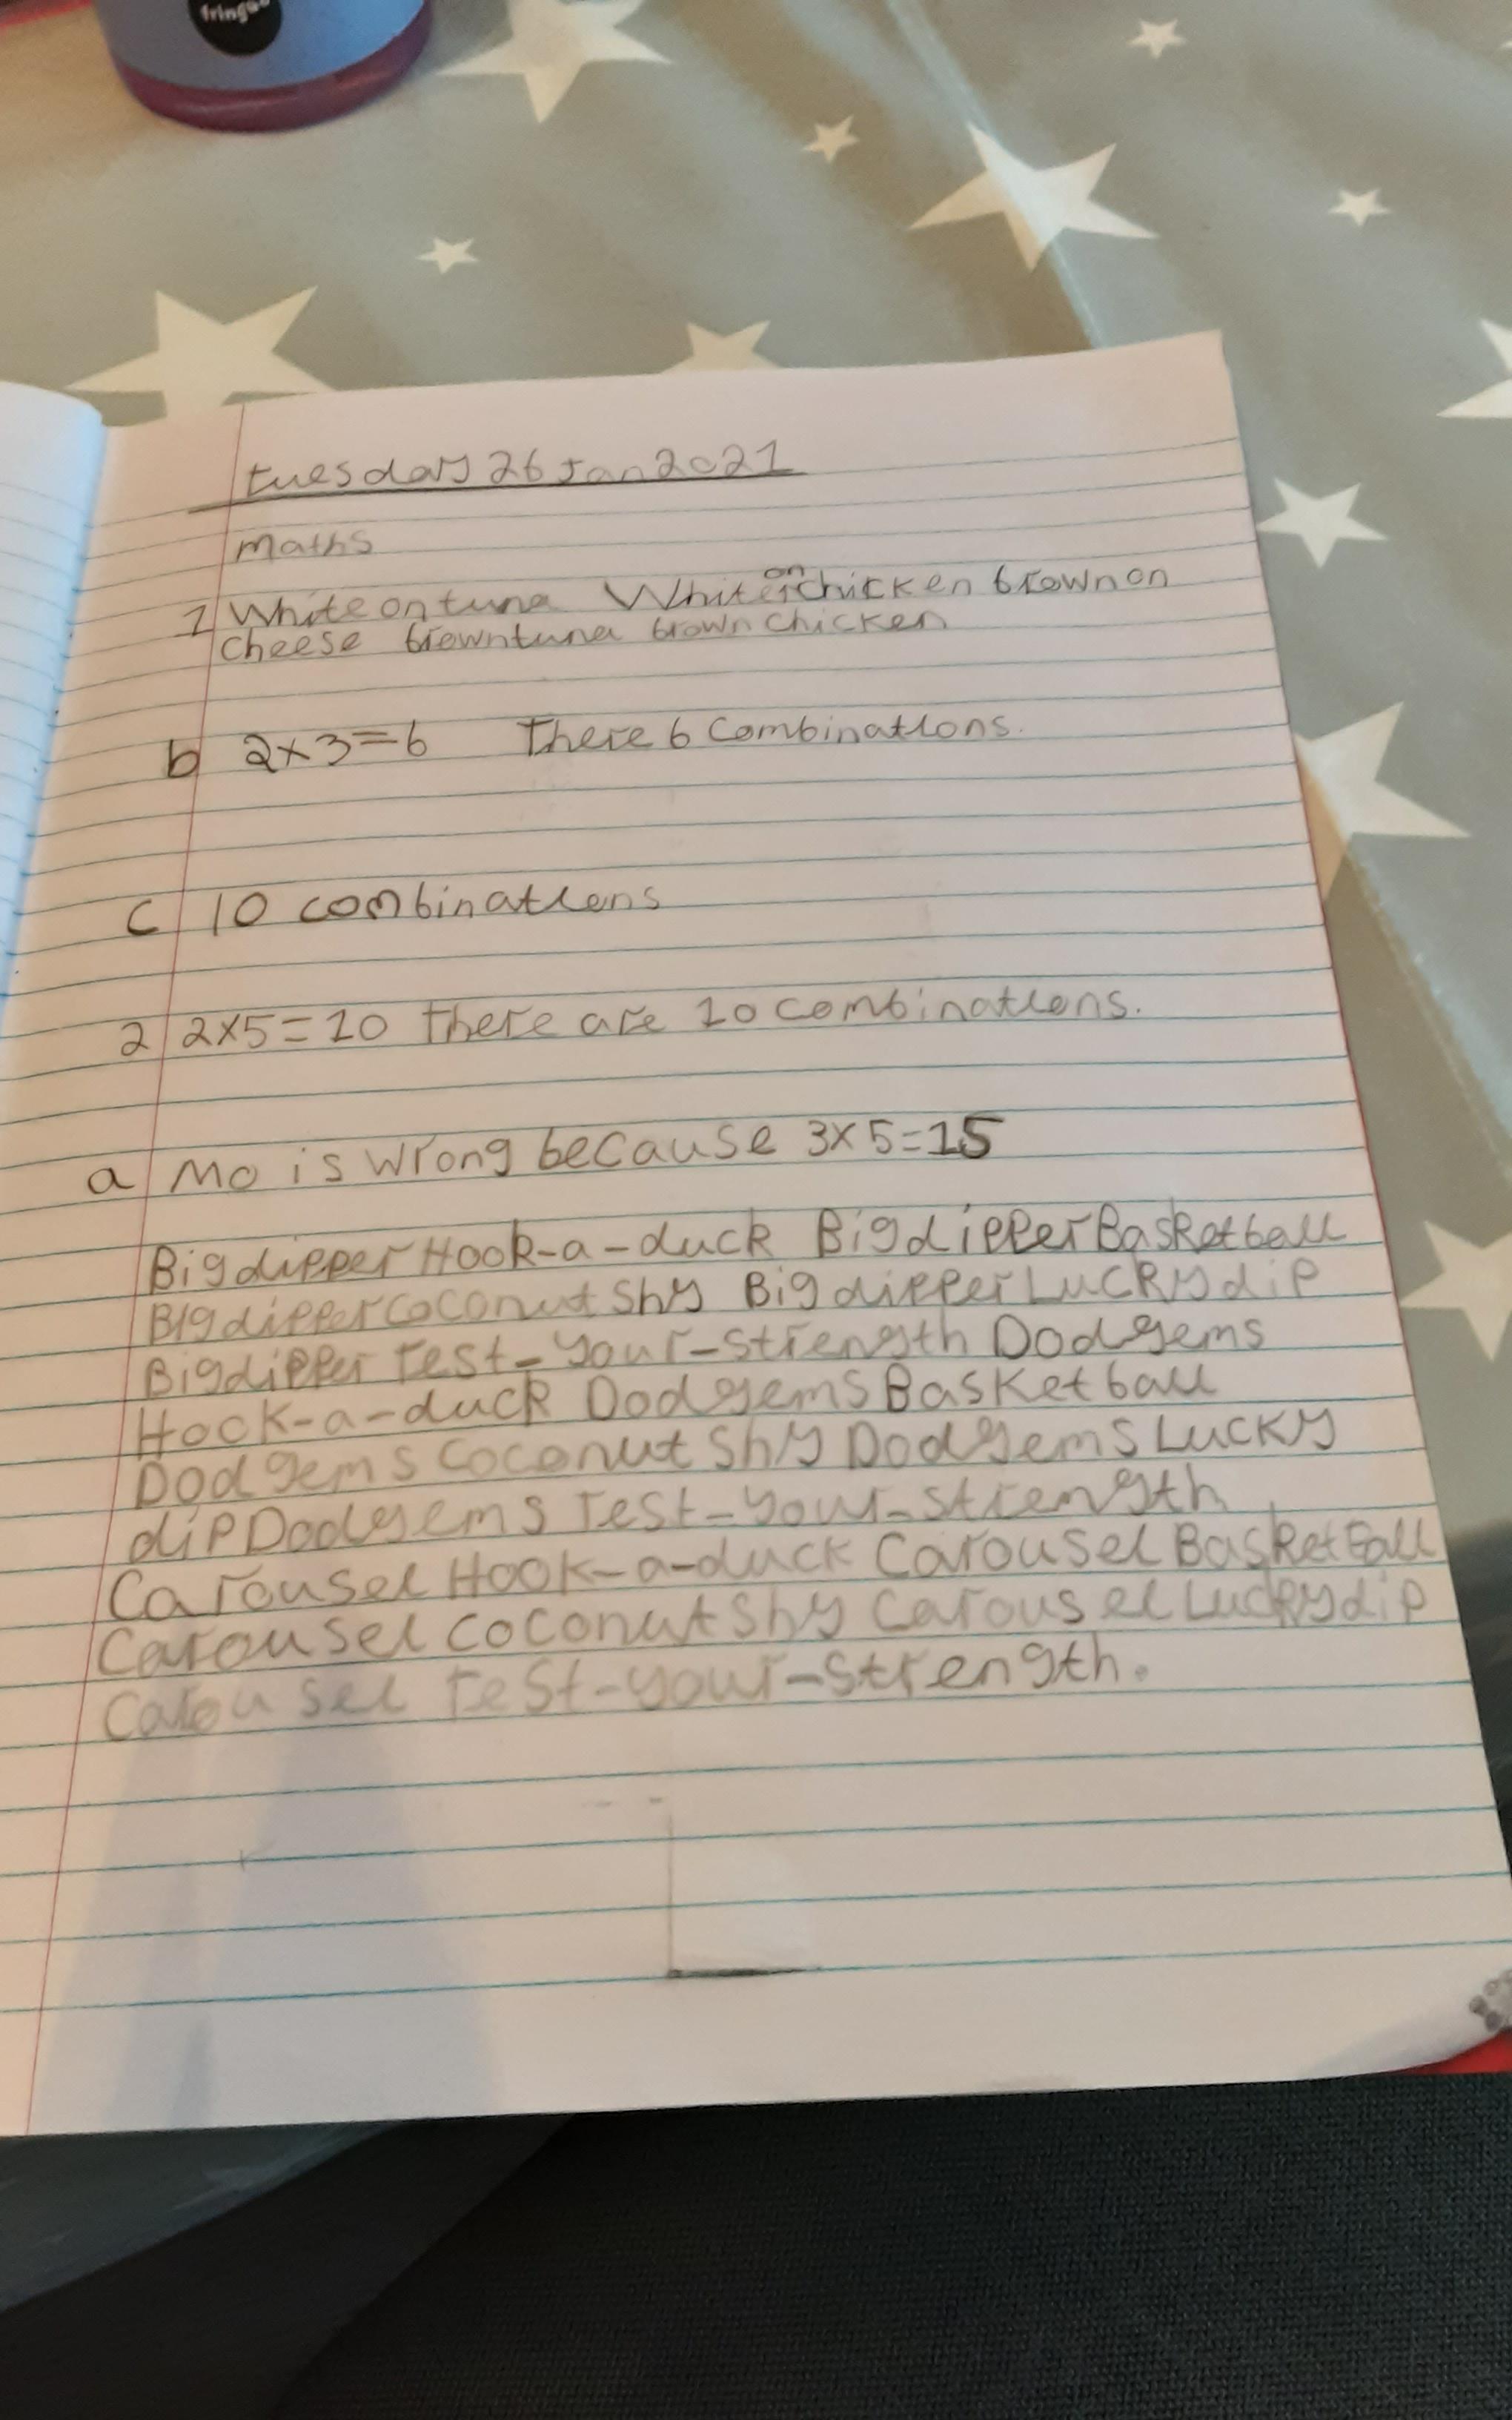 fringe
tuesday 26 Jan 2021
maths
1 White on tuna White on chicken brown on
cheese brown tuna brown chicken
b 2×3=6 There 6 combinations.
c 10 combinations
2 2×5=10 there are 10 combinations.
a Mo is wrong because 3×5=15
Big dipper Hook-a-duck Big dipper Basketball
Big dipper coconut shy Big dipper Lucky dip
Big dipper Test-your-strength Dodgems
Hook-a-duck Dodgems Basketball
Dodgems coconut shy Dodgems Lucky
dip Dodgems Test-your-strength
Carousel Hook-a-duck Carousel Basketball
Carousel coconut shy Carousel Lucky dip
Carousel Test-your-strength.